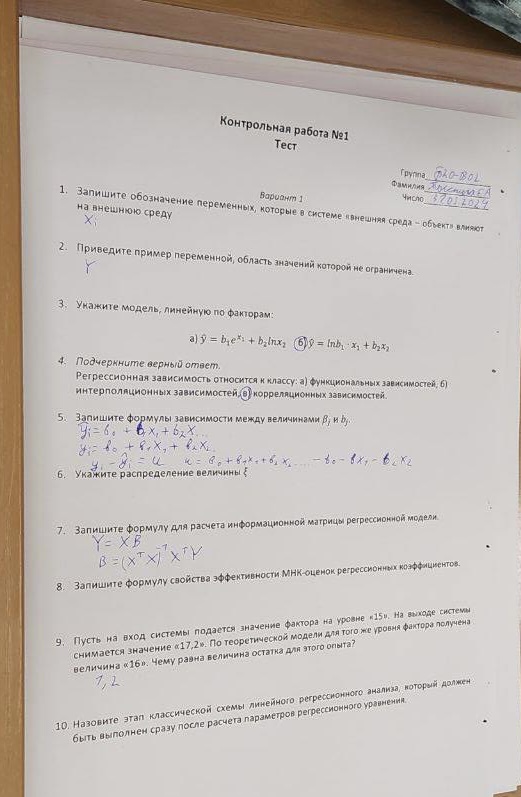 Контрольная работа №1
Тест
Группа
Фамилия
Вариант 1
Число
1. Запишите обозначение переменных, которые в системе «внешняя среда – объект» влияют
на внешнюю среду
Xi
2. Приведите пример переменной, область значений которой не ограничена.
Y
3. Укажите модель, линейную по факторам:
а) ŷ = b₁eˣ¹ + b₂lnx₂ б) ŷ = lnb₁ · x₁ + b₂x₂
4. Подчеркните верный ответ.
Регрессионная зависимость относится к классу: а) функциональных зависимостей, б)
интерполяционных зависимостей, в) корреляционных зависимостей.
5. Запишите формулы зависимости между величинами βⱼ и bⱼ.
ŷi = b₀ + b₁x₁ + b₂x₂...
yi = b₀ + b₁x₁ + b₂x₂...
yi - ŷi = u u = b₀ + b₁x₁ + b₂x₂.... - b₀ - bx₁ - b₂x₂
6. Укажите распределение величины ξ
7. Запишите формулу для расчета информационной матрицы регрессионной модели.
Y = XB
B = (XᵀX)⁻¹XᵀY
8. Запишите формулу свойства эффективности МНК-оценок регрессионных коэффициентов.
9. Пусть на вход системы подается значение фактора на уровне «15». На выходе системы
снимается значение «17,2». По теоретической модели для того же уровня фактора получена
величина «16». Чему равна величина остатка для этого опыта?
1,2
10. Назовите этап классической схемы линейного регрессионного анализа, который должен
быть выполнен сразу после расчета параметров регрессионного уравнения.